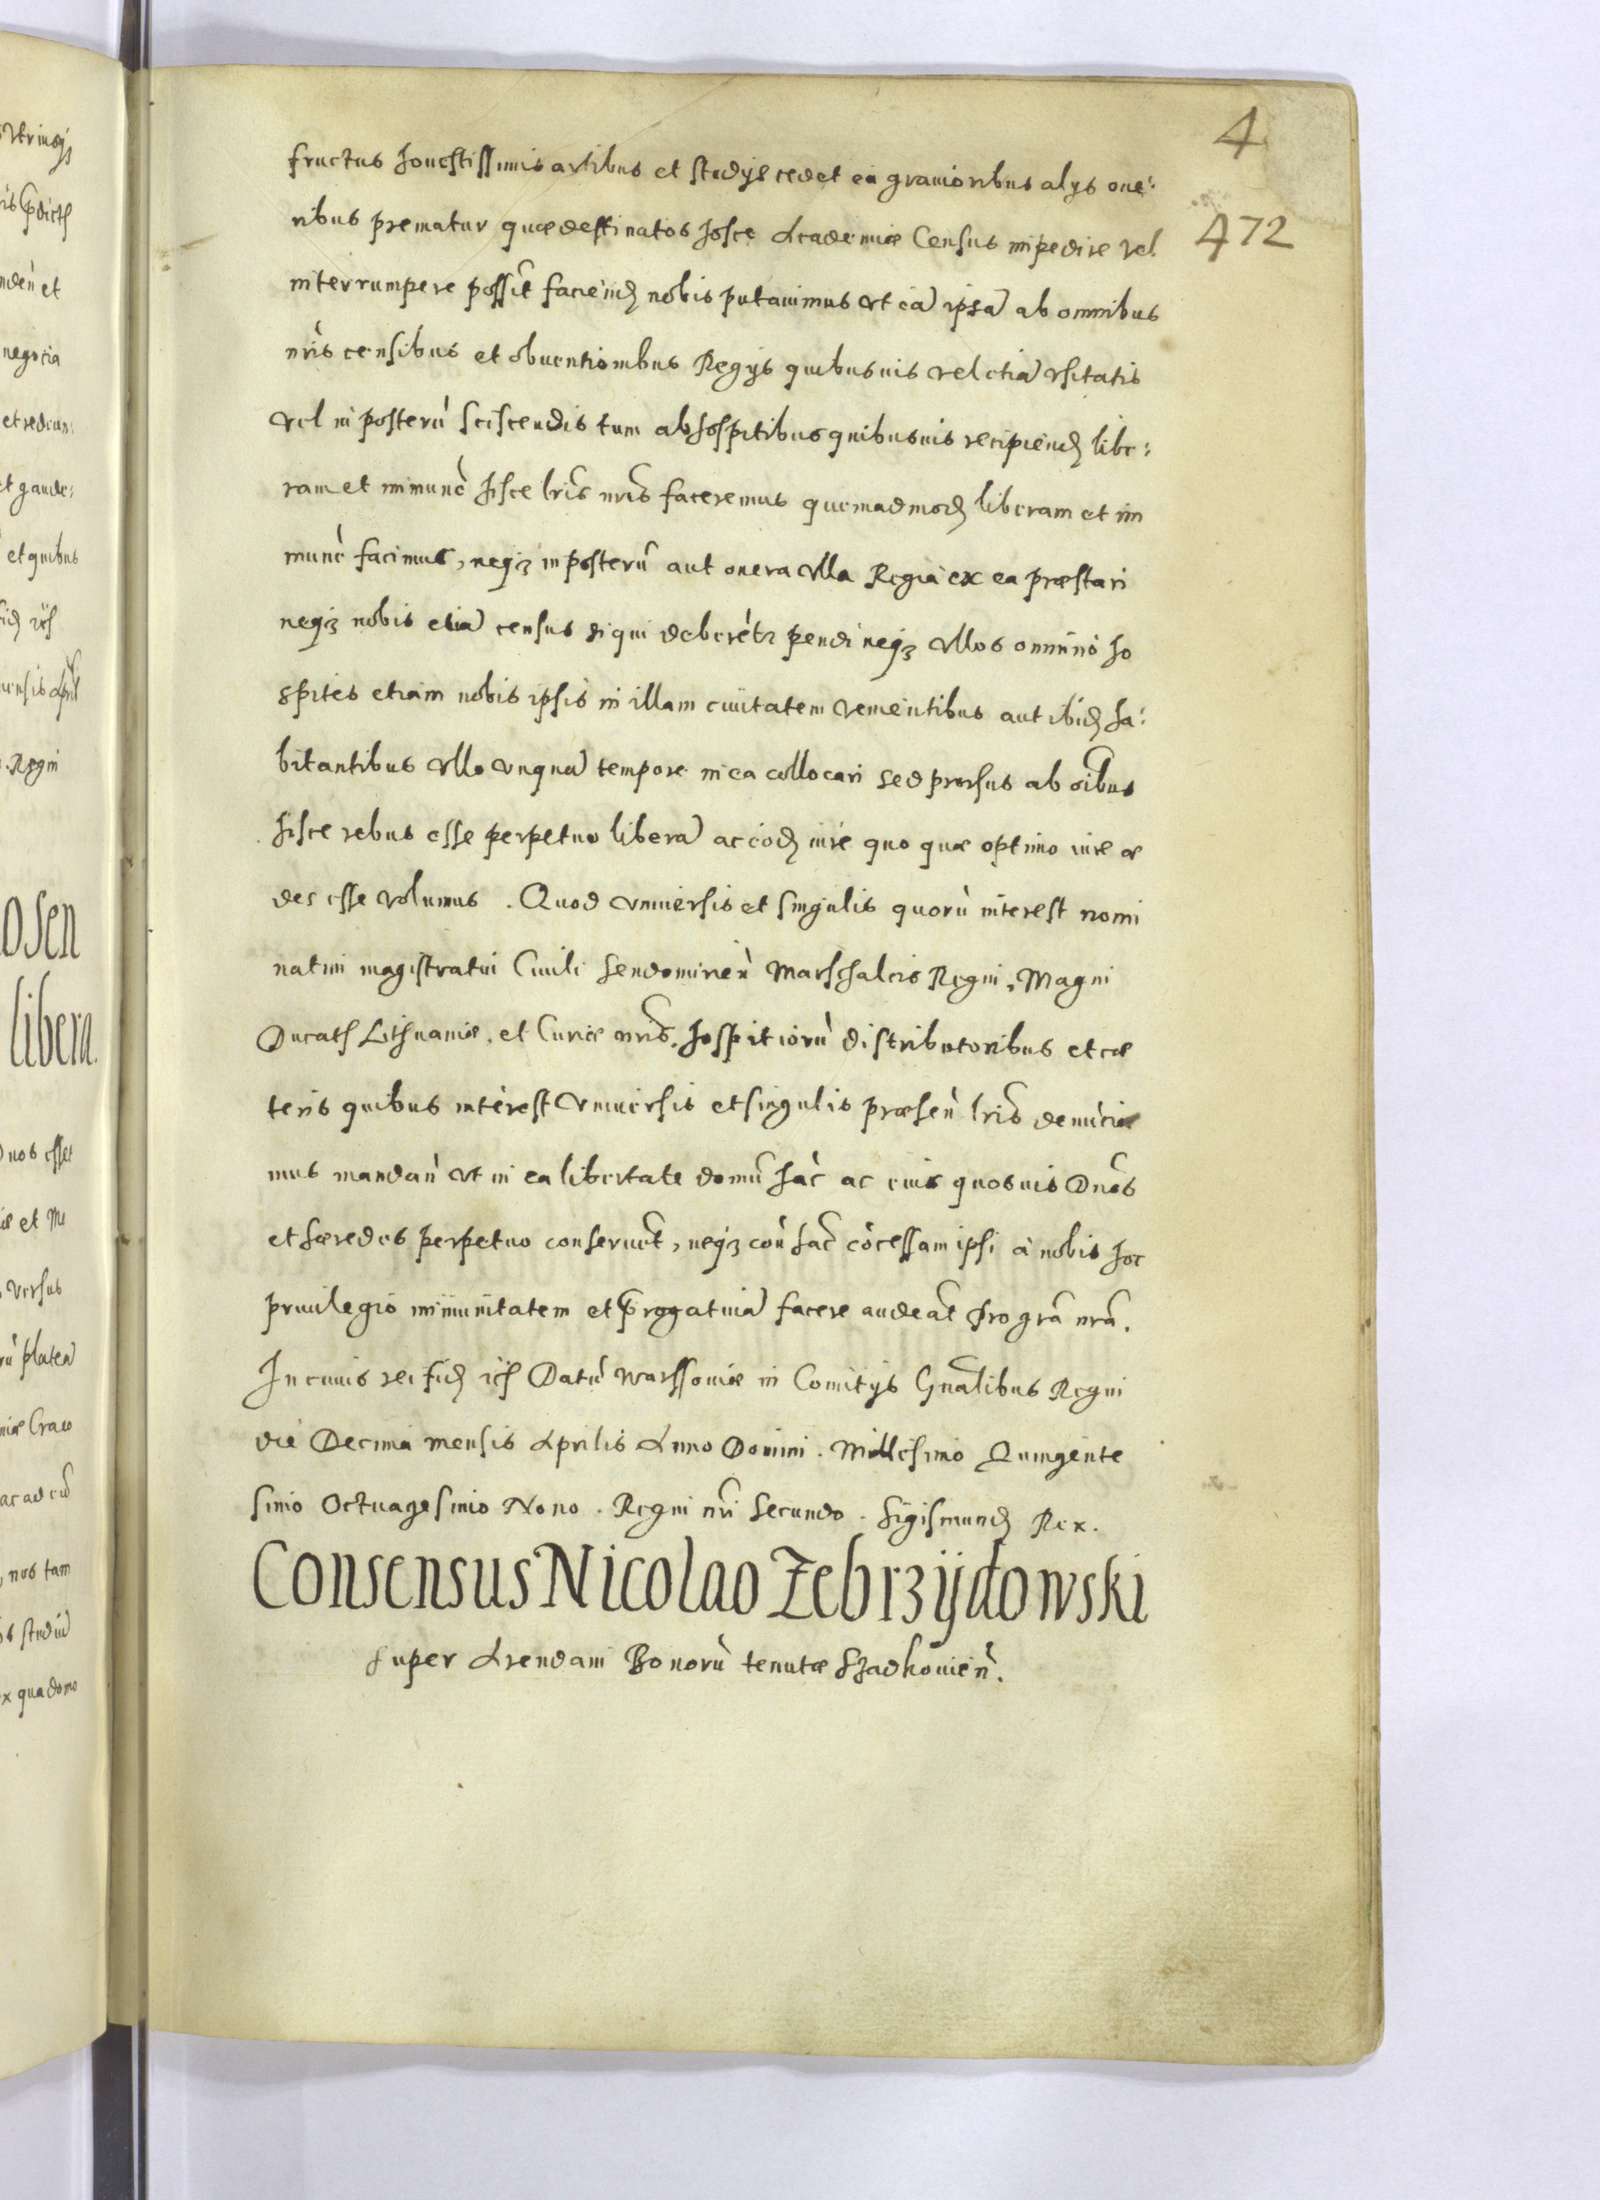 4
472
fructus honestissimis artibus et studijs cedet ea grauioribus alijs one:
ribus prematur quae destinatos hosce Academiae Census impedire vel
interrumpere possit faciend nobis putauimus vt ea ipsa ab omnibus
nris censibus et obuentionibus Regijs quibusuis vel etia vsitatis
vel in posteru sciscendis tum ab hospitibus quibusuis recipiend libe:
ram et immune hisce lris nris faceremus quemadmod liberam et im
mune facimus, neqз in posteru aut onera vlla Regia ex ea praestari
neqз nobis etia census si qui deberet pendi neqз vllos omnino ho
spites etiam nobis ipsis in illam ciuitatem venientibus aut ibid ha:
bitantibus vllo vnqua tempore in ea collocari sed prorsus ab oibus
hisce rebus esse perpetuo libera ac eod iure quo quae optimo iure ae
des esse volumus. Quod vniuersis et singulis quoru interest nomi
natim magistratui Ciuili Sendomirien Marschalcis Regni, Magni
Ducats Lithuaniae, et Curiae nris, hospitioru distributoribus et cae
teris quibus interest vniuersis et singulis praesen lris denuncia
mus mandan vt in ea libertate domu hac ac eius quosuis Dnos
et haeredes perpetuo conseruet, neqз con hac cocessam ipsi a nobis hoc
priuilegio immunitatem et progatiua facere audeat Pro gra nra.
In cuius rei fid Datu Warssouiae in Comitijs Gnalibus Regni
die Decima mensis Aprilis Anno Domini. Millesimo Quingente
simo Octuagesimo Nono. Regni nri Secundo. Sigismund Rex.
Consensus Nicolao Zebrzijdowski
super Arendam Bonoru tenutae Szadkouien.